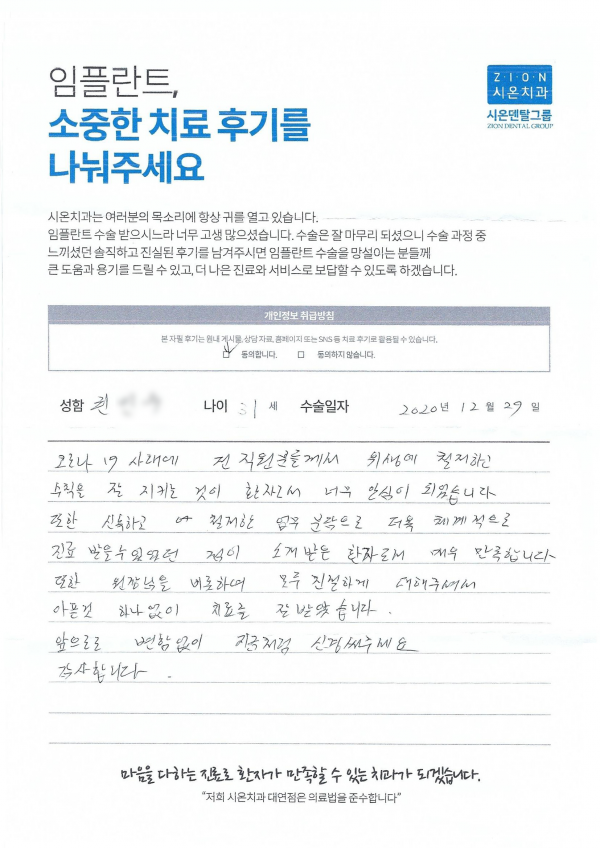 임플란트,
소중한 치료 후기를
나눠주세요
Z·I·O·N
시온치과
시온덴탈그룹
ZION DENTAL GROUP
시온치과는 여러분의 목소리에 항상 귀를 열고 있습니다.
임플란트 수술 받으시느라 너무 고생 많으셨습니다. 수술은 잘 마무리 되셨으니 수술 과정 중
느끼셨던 솔직하고 진실된 후기를 남겨주시면 임플란트 수술을 망설이는 분들께
큰 도움과 용기를 드릴 수 있고, 더 나은 진료와 서비스로 보답할 수 있도록 하겠습니다.
개인정보 취급방침
본 자필 후기는 원내 게시물, 상담 자료, 홈페이지 또는 SNS 등 치료 후기로 활용될 수 있습니다.
동의합니다. 동의하지 않습니다.
성함 권 나이 31 세 수술일자 2020 년 12 월 29 일
코로나 19 사태에 전 직원분들께서 위생에 철저하고
수칙을 잘 지키는 것이 환자로서 너무 안심이 되었습니다
또한 신속하고 철저한 업무 분담으로 더욱 체계적으로
진료 받을수 있었던 점이 소개받은 환자로서 매우 만족합니다
또한 원장님을 비롯하여 모두 친절하게 대해주셔서
아픈것 하나없이 치료를 잘 받았습니다.
앞으로도 변함없이 지금처럼 신경써주세요
감사합니다.
마음을 다하는 진료로 환자가 만족할 수 있는 치과가 되겠습니다.
"저희 시온치과 대연점은 의료법을 준수합니다"